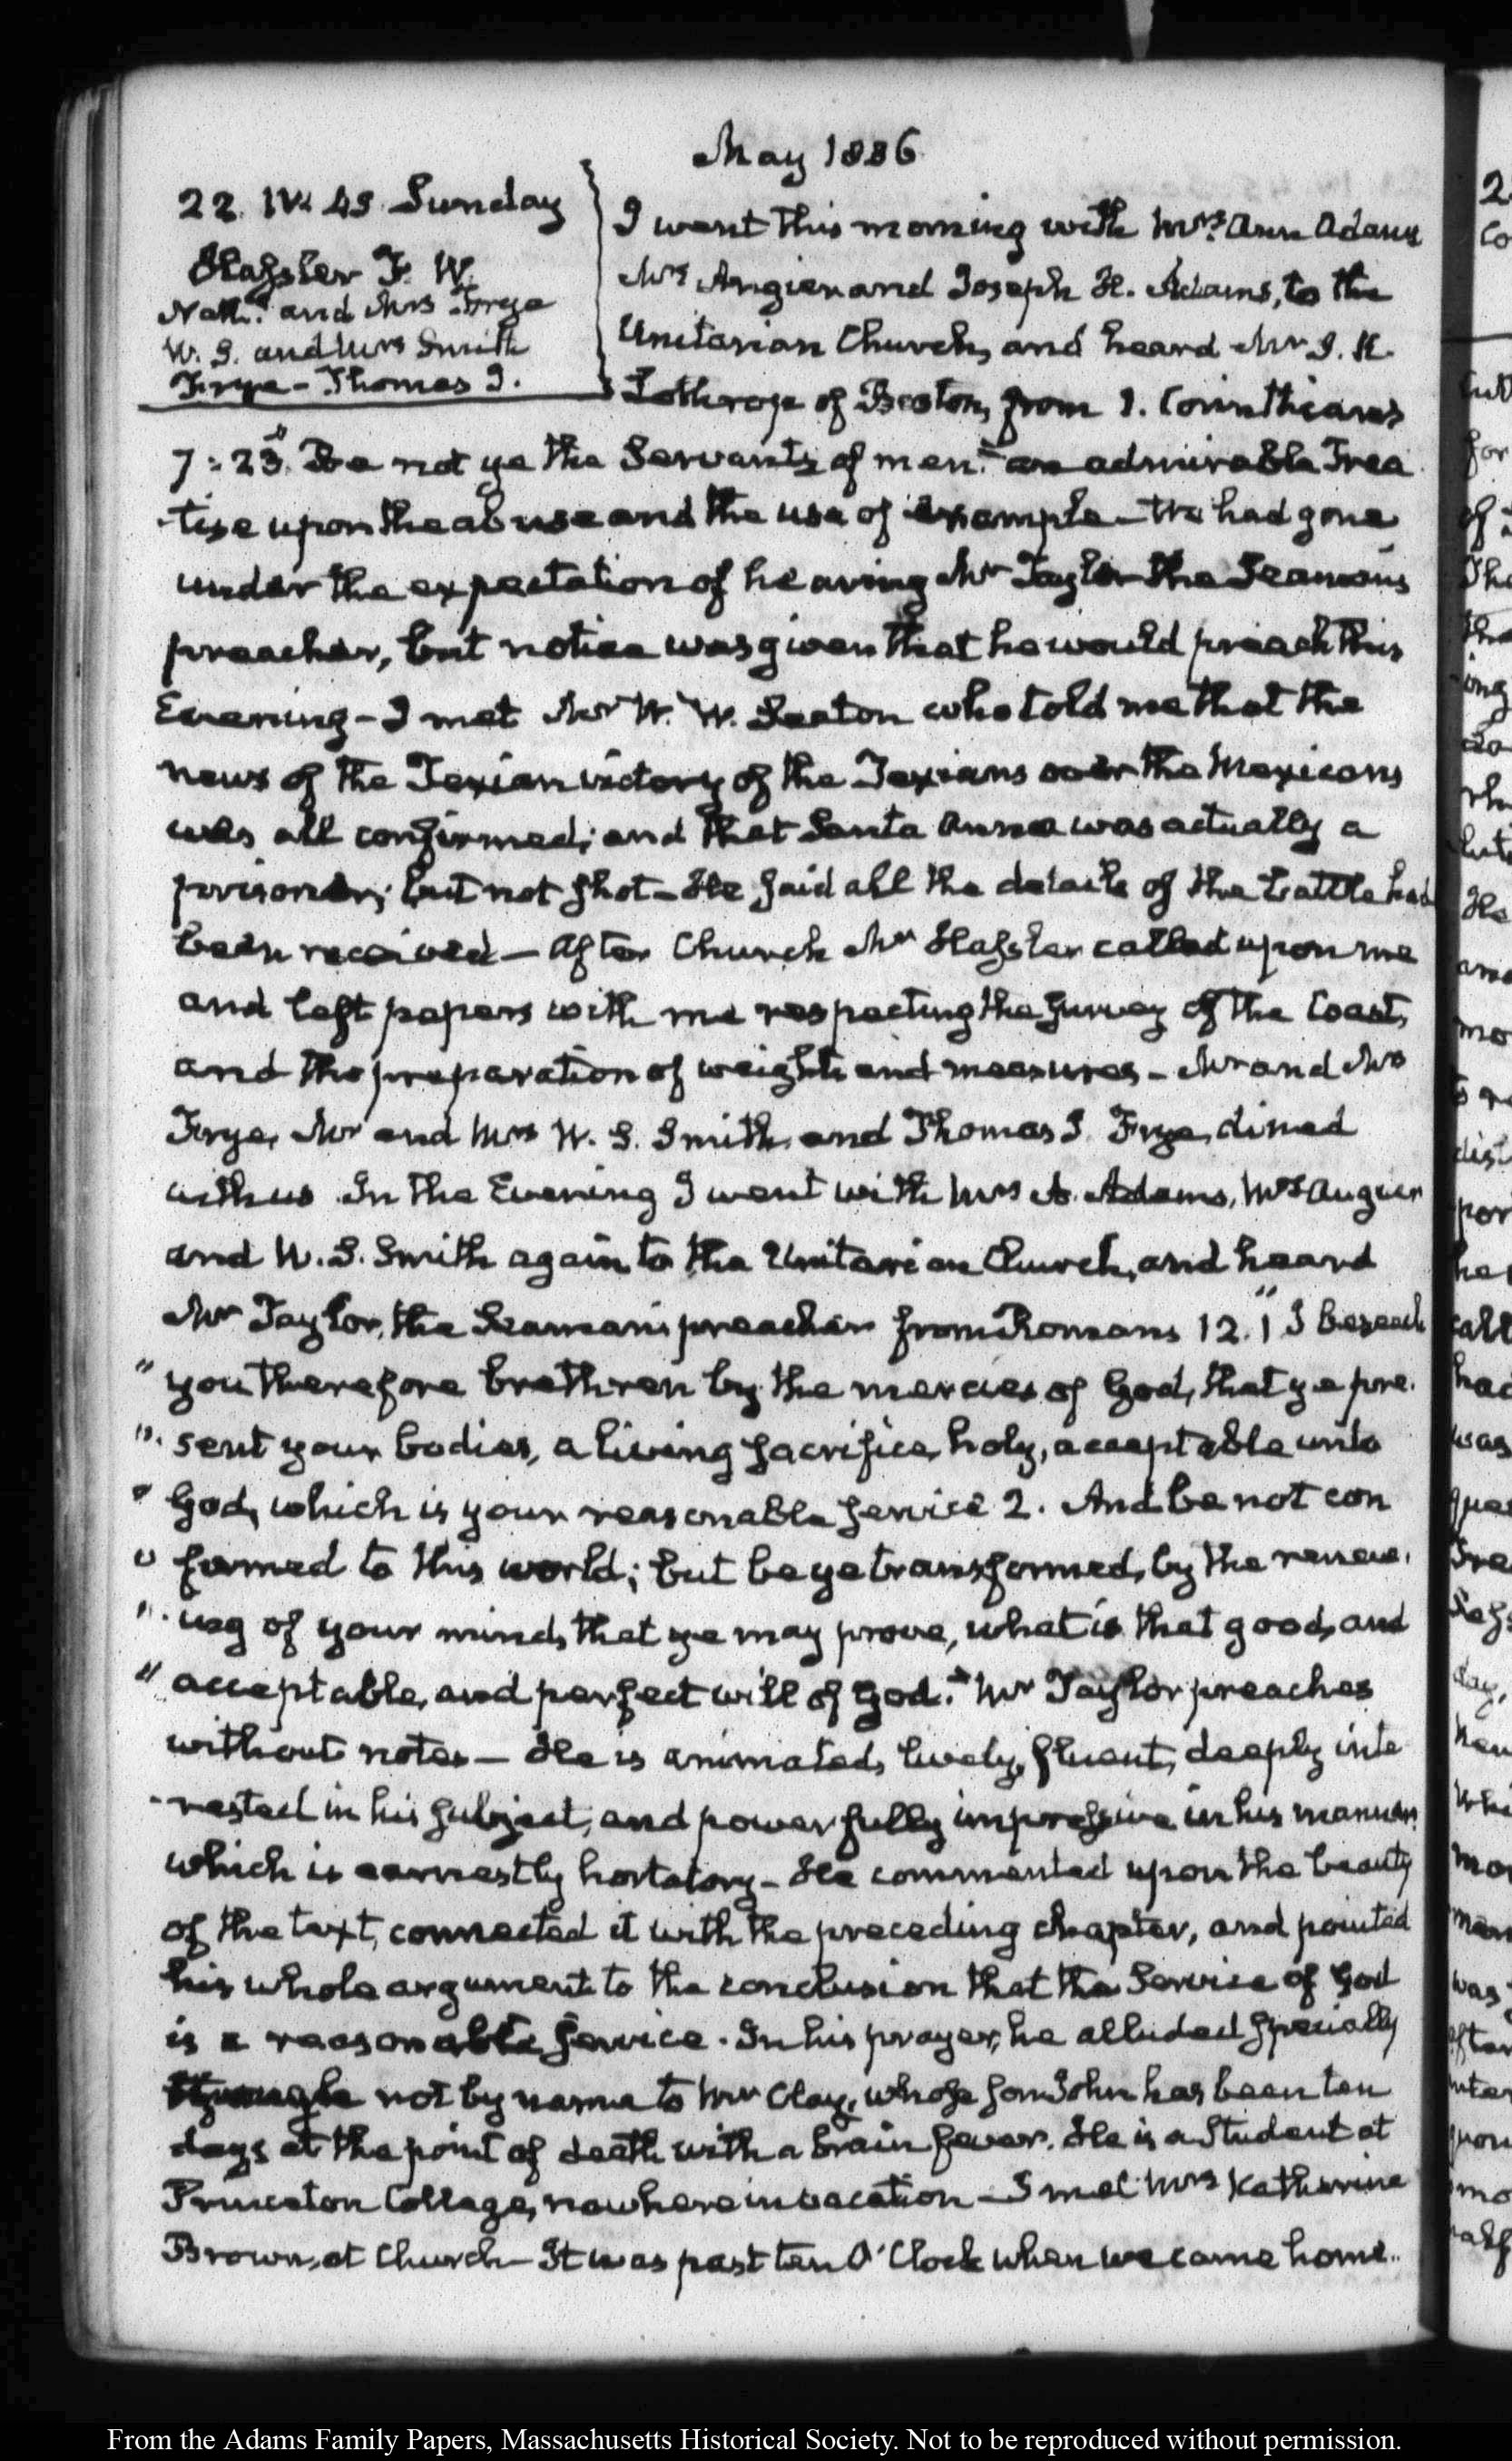 May 1836
22. IV. 45. Sunday
Hassler F. W.
Nath.l and Mrs Frye
W. S. and Mrs Smith
Frye - Thomas J.
I went this morning with Mrs. Ann Adams
Mrs Angier and Joseph H. Adams, to the
Unitarian Church, and heard Mr S. K.
Lothrop of Boston, from 1. Corinthians
7:23. "Be not ye the Servants of men." an admirable Trea
-tise upon the abuse and the use of example - We had gone
under the expectation of hearing Mr Taylor the Seamans
preacher, but notice was given that he would preach this
Evening - I met Mr W. W. Seaton who told me that the
news of the Texian victory of the Texians over the Mexicans
was all confirmed; and that Santa Anna was actually a
prisoner; but not shot - He said all the details of the battle had
been received - After Church Mr Hassler called upon me
and left papers with me respecting the survey of the Coast,
and the preparation of weights and measures - Mr and Mrs
Frye, Mr and Mrs W. S. Smith, and Thomas J. Frye, dined
with us. In the Evening I went with Mrs A. Adams, Mrs Angier
and W. S. Smith again to the Unitarian Church, and heard
Mr Taylor, the Seaman's preacher from Romans 12.1 "I beseech
" you therefore brethren by the mercies of God, that ye pre.
". sent your bodies, a living sacrifice, holy, acceptable unto
" God, which is your reasonable service 2. And be not con
" formed to this world; but be ye transformed, by the renew.
". ing of your mind, that ye may prove, what is that good, and
" acceptable, and perfect will of God." Mr Taylor preaches
without notes - He is animated, lively, fluent, deeply inte
-rested in his subject, and powerfully impressive in his manner,
which is earnestly hortatory - He commented upon the beauty
of the text, connected it with the preceding chapter, and pointed
his whole argument to the conclusion that the Service of God
is a reasonable service. In his prayer, he alluded specially
though not by name to Mr Clay, whose son John has been ten
days at the point of death with a brain fever. He is a Student at
Princeton College, now here in vacation - I met Mrs Katherine
Brown, at Church - It was past ten O'Clock when we came home.
From the Adams Family Papers, Massachusetts Historical Society. Not to be reproduced without permission.